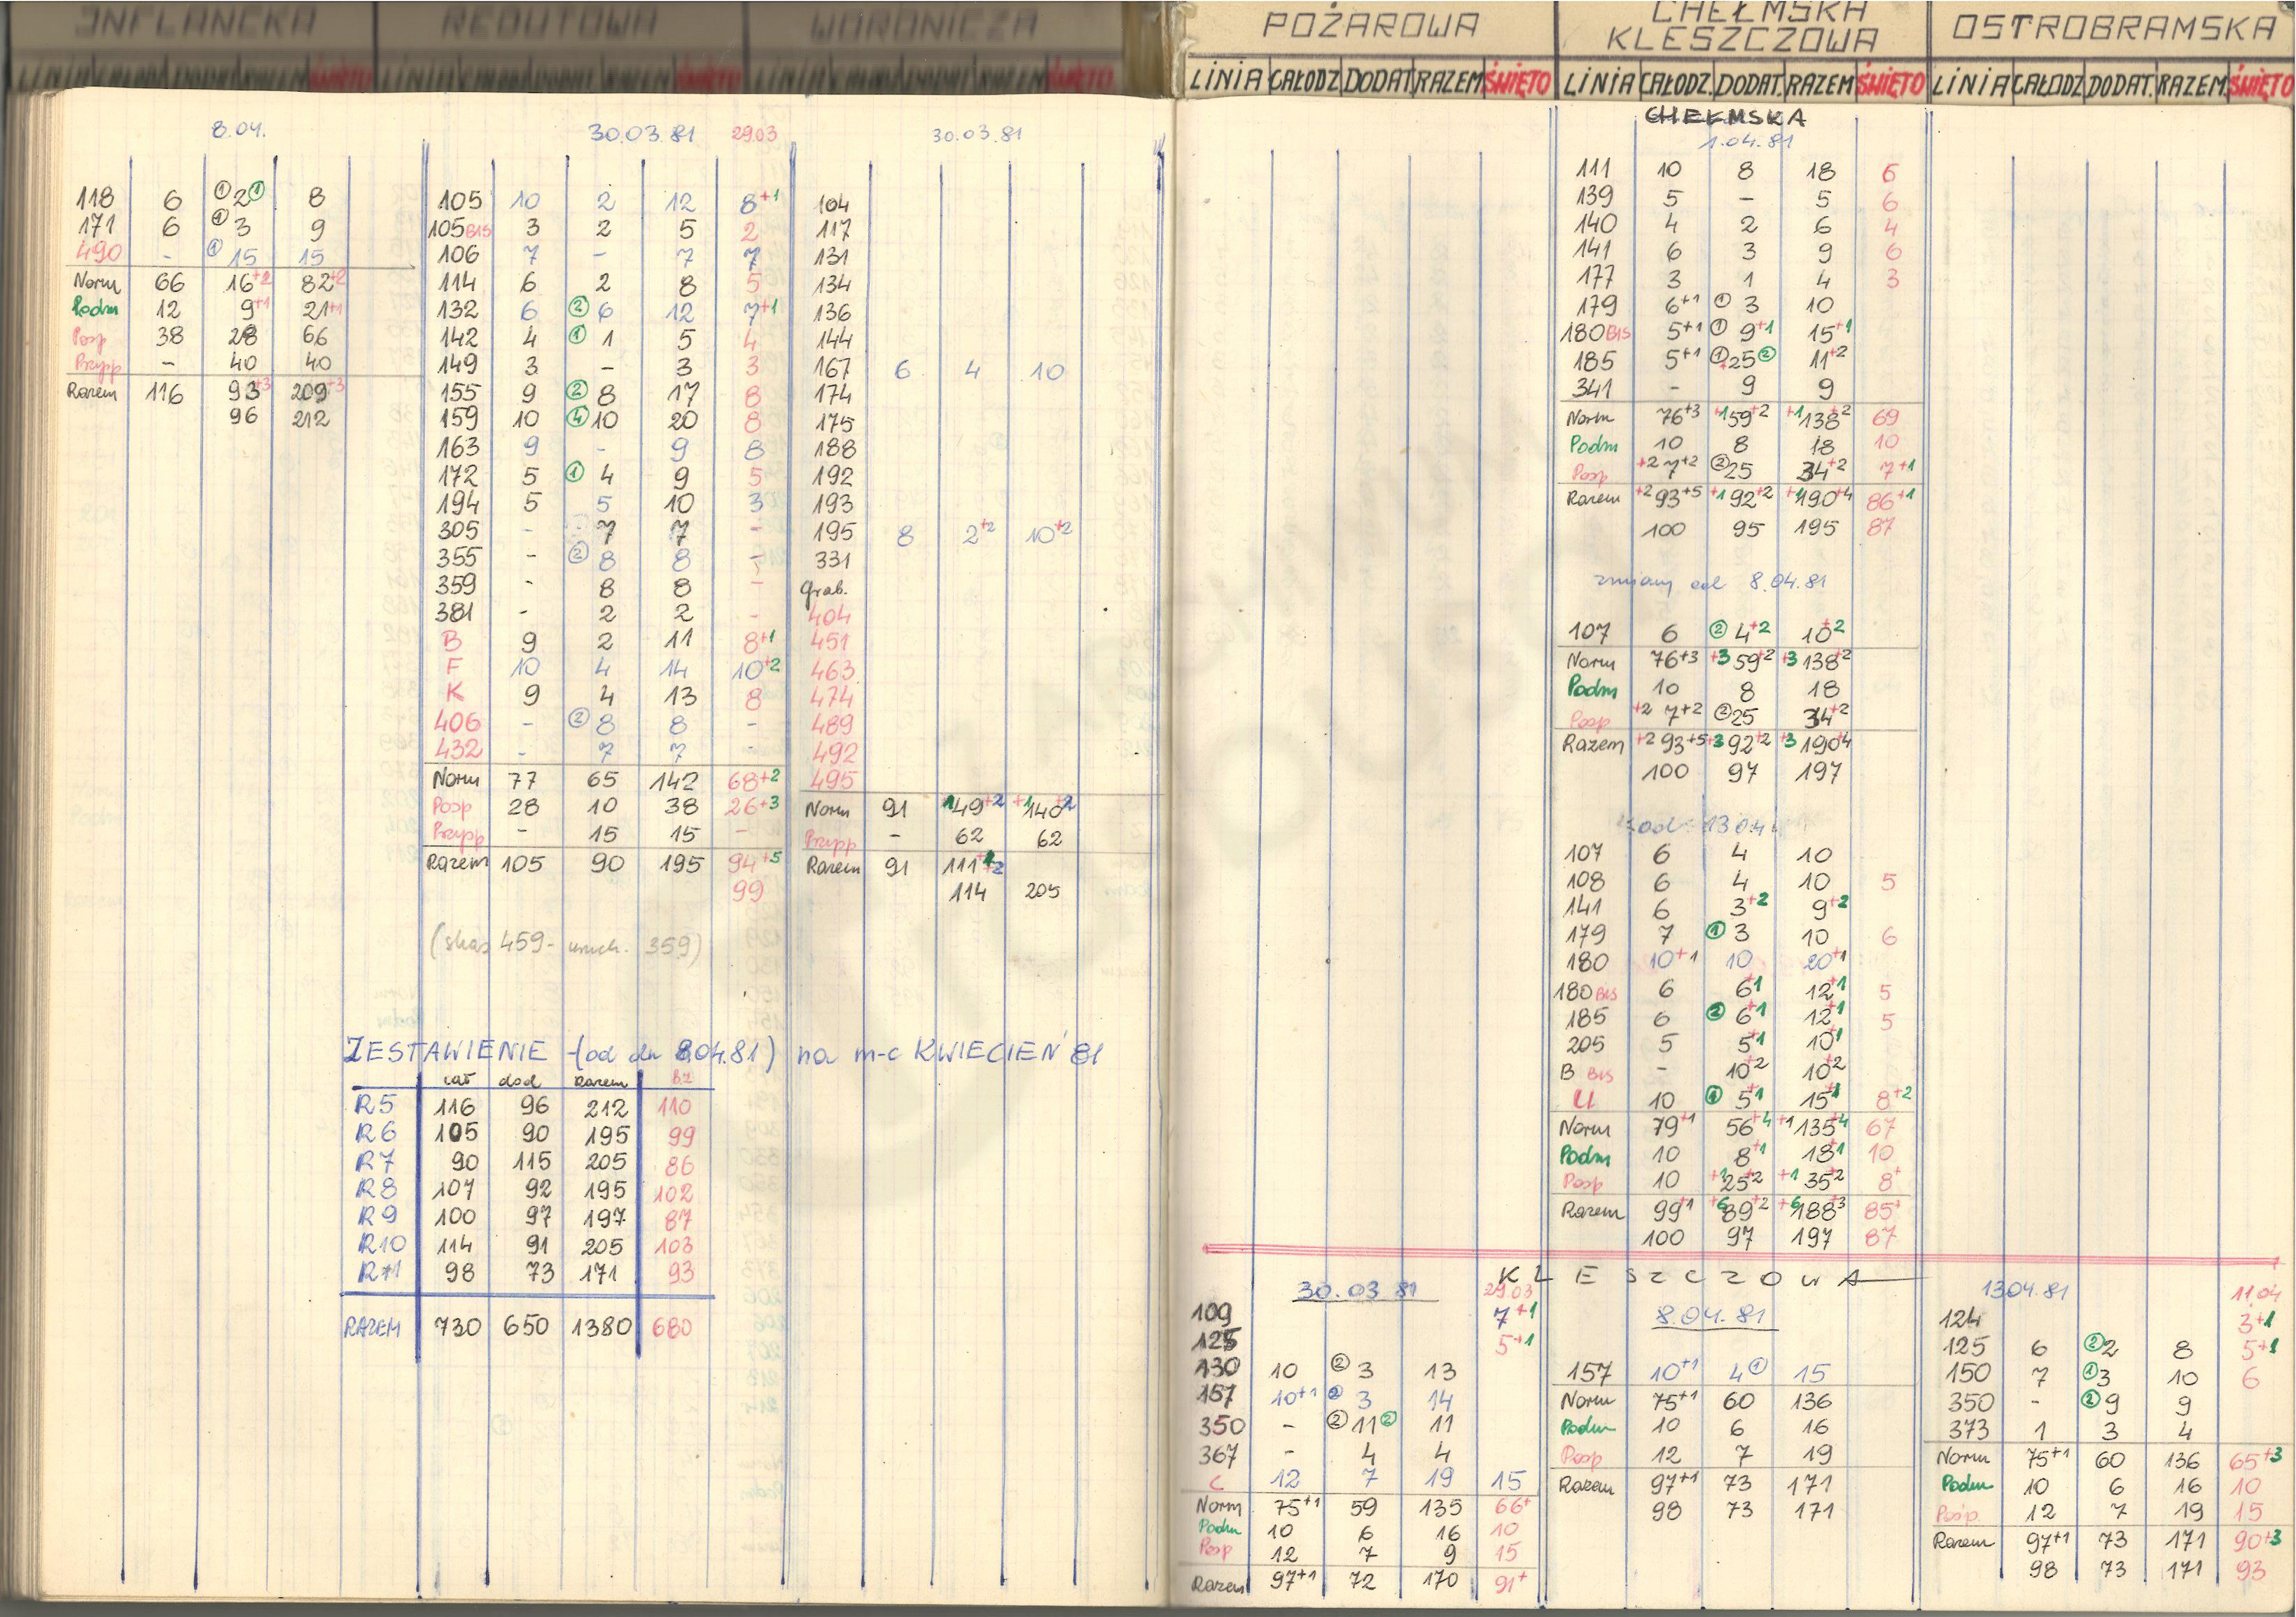 INFLANCKA REDUTOWA WORONICZA
POŻAROWA CHEŁMSKA KLESZCZOWA OSTROBRAMSKA
LINIA CAŁODZ. DODAT. RAZEM ŚWIĘTO LINIA CAŁODZ. DODAT. RAZEM ŚWIĘTO LINIA CAŁODZ. DODAT. RAZEM ŚWIĘTO
LINIA CAŁODZ DODAT RAZEM ŚWIĘTO LINIA CAŁODZ. DODAT. RAZEM ŚWIĘTO LINIA CAŁODZ DODAT. RAZEM. ŚWIĘTO
8.04.
118 6 ①2① 8
171 6 ①3 9
490 - ①15 15
Norm 66 16+2 82+2
Podm 12 9+1 21+1
Posp 38 28 66
Przysp - 40 40
Razem 116 93+3 209+3
96 212
30.03.81 29.03
105 10 2 12 8+1
105 BIS 3 2 5 2
106 7 - 7 7
114 6 2 8 5
132 6 ②6 12 7+1
142 4 ①1 5 4
149 3 - 3 3
155 9 ②8 17 8
159 10 ④10 20 8
163 9 - 9 8
172 5 ①4 9 5
194 5 5 10 3
305 - 7 7 -
355 - ②8 8 -
359 - 8 8 -
381 - 2 2 -
B 9 2 11 8+1
F 10 4 14 10+2
K 9 4 13 8
406 - ②8 8 -
432 - 7 7 -
Norm 77 65 142 68+2
Posp 28 10 38 26+3
Przysp - 15 15 -
Razem 105 90 195 94+5
99
(skas 459- uruch. 359)
30.03.81
104
117
131
134
136
144
167 6 4 10
174
175
188
192
193
195 8 2+2 10+2
331
Grab.
404
451
463
474
489
492
495
Norm 91 149+2 +1140+2
Przysp - 62 62
Razem 91 111+2
114 205
ZESTAWIENIE (od dn 8.04.81) na m-c KWIECIEŃ 81
cał dod razem
R5 116 96 212 110
R6 105 90 195 99
R7 90 115 205 86
R8 107 92 195 102
R9 100 97 197 87
R10 114 91 205 103
R11 98 73 171 93
RAZEM 730 650 1380 680
CHEŁMSKA
1.04.81
111 10 8 18 6
139 5 - 5 6
140 4 2 6 4
141 6 3 9 6
177 3 1 4 3
179 6+1 ①3 10
180 BIS 5+1 ①9+1 15+1
185 5+1 ①25② 11+2
341 - 9 9
Norm 76+3 +159+2 +1138+2 69
Podm 10 8 18 10
Posp +2 7+2 ②25 34+2 7+1
Razem +2 93+5 +192+2 +1190+4 86+1
100 95 195 87
zmiany od 8.04.81
107 6 ②4+2 10+2
Norm 76+3 +3 59+2 +3 138+2
Podm 10 8 18
Posp +2 7+2 ②25 34+2
Razem +2 93+5 +3 92+2 +3 190+4
100 97 197
od 13.04
107 6 4 10
108 6 4 10 5
141 6 3+2 9+2
179 7 ①3 10 6
180 10+1 10 20+1
180 BIS 6 6+1 12+1 5
185 6 ②6+1 12+1 5
205 5 5+1 10+1
B BIS - 10+2 10+2
U 10 ①5+1 15+1 8+2
Norm 79+1 56+4 +1135+4 67
Podm 10 8+1 18+1 10
Posp 10 +125+2 +1 35+2 8+
Razem 99+1 +6 89+2 +6 188+3 85+
100 97 197 87
KLESZCZOWA
30.03.81 29.03
109 7+1
125 5+1
130 10 ②3 13
157 10+1 ②3 14
350 - ②11② 11
367 - 4 4
C 12 7 19 15
Norm 75+1 59 135 66+
Podm 10 6 16 10
Posp 12 7 9 15
Razem 97+1 72 170 91+
8.04.81
157 10+1 4① 15
Norm 75+1 60 136
Podm 10 6 16
Posp 12 7 19
Razem 97+1 73 171
98 73 171
13.04.81 11.04
124 3+1
125 6 ②2 8 5+1
150 7 ①3 10 6
350 - ②9 9
373 1 3 4
Norm 75+1 60 136 65+3
Podm 10 6 16 10
Posp. 12 7 19 15
Razem 97+1 73 171 90+3
98 73 171 93